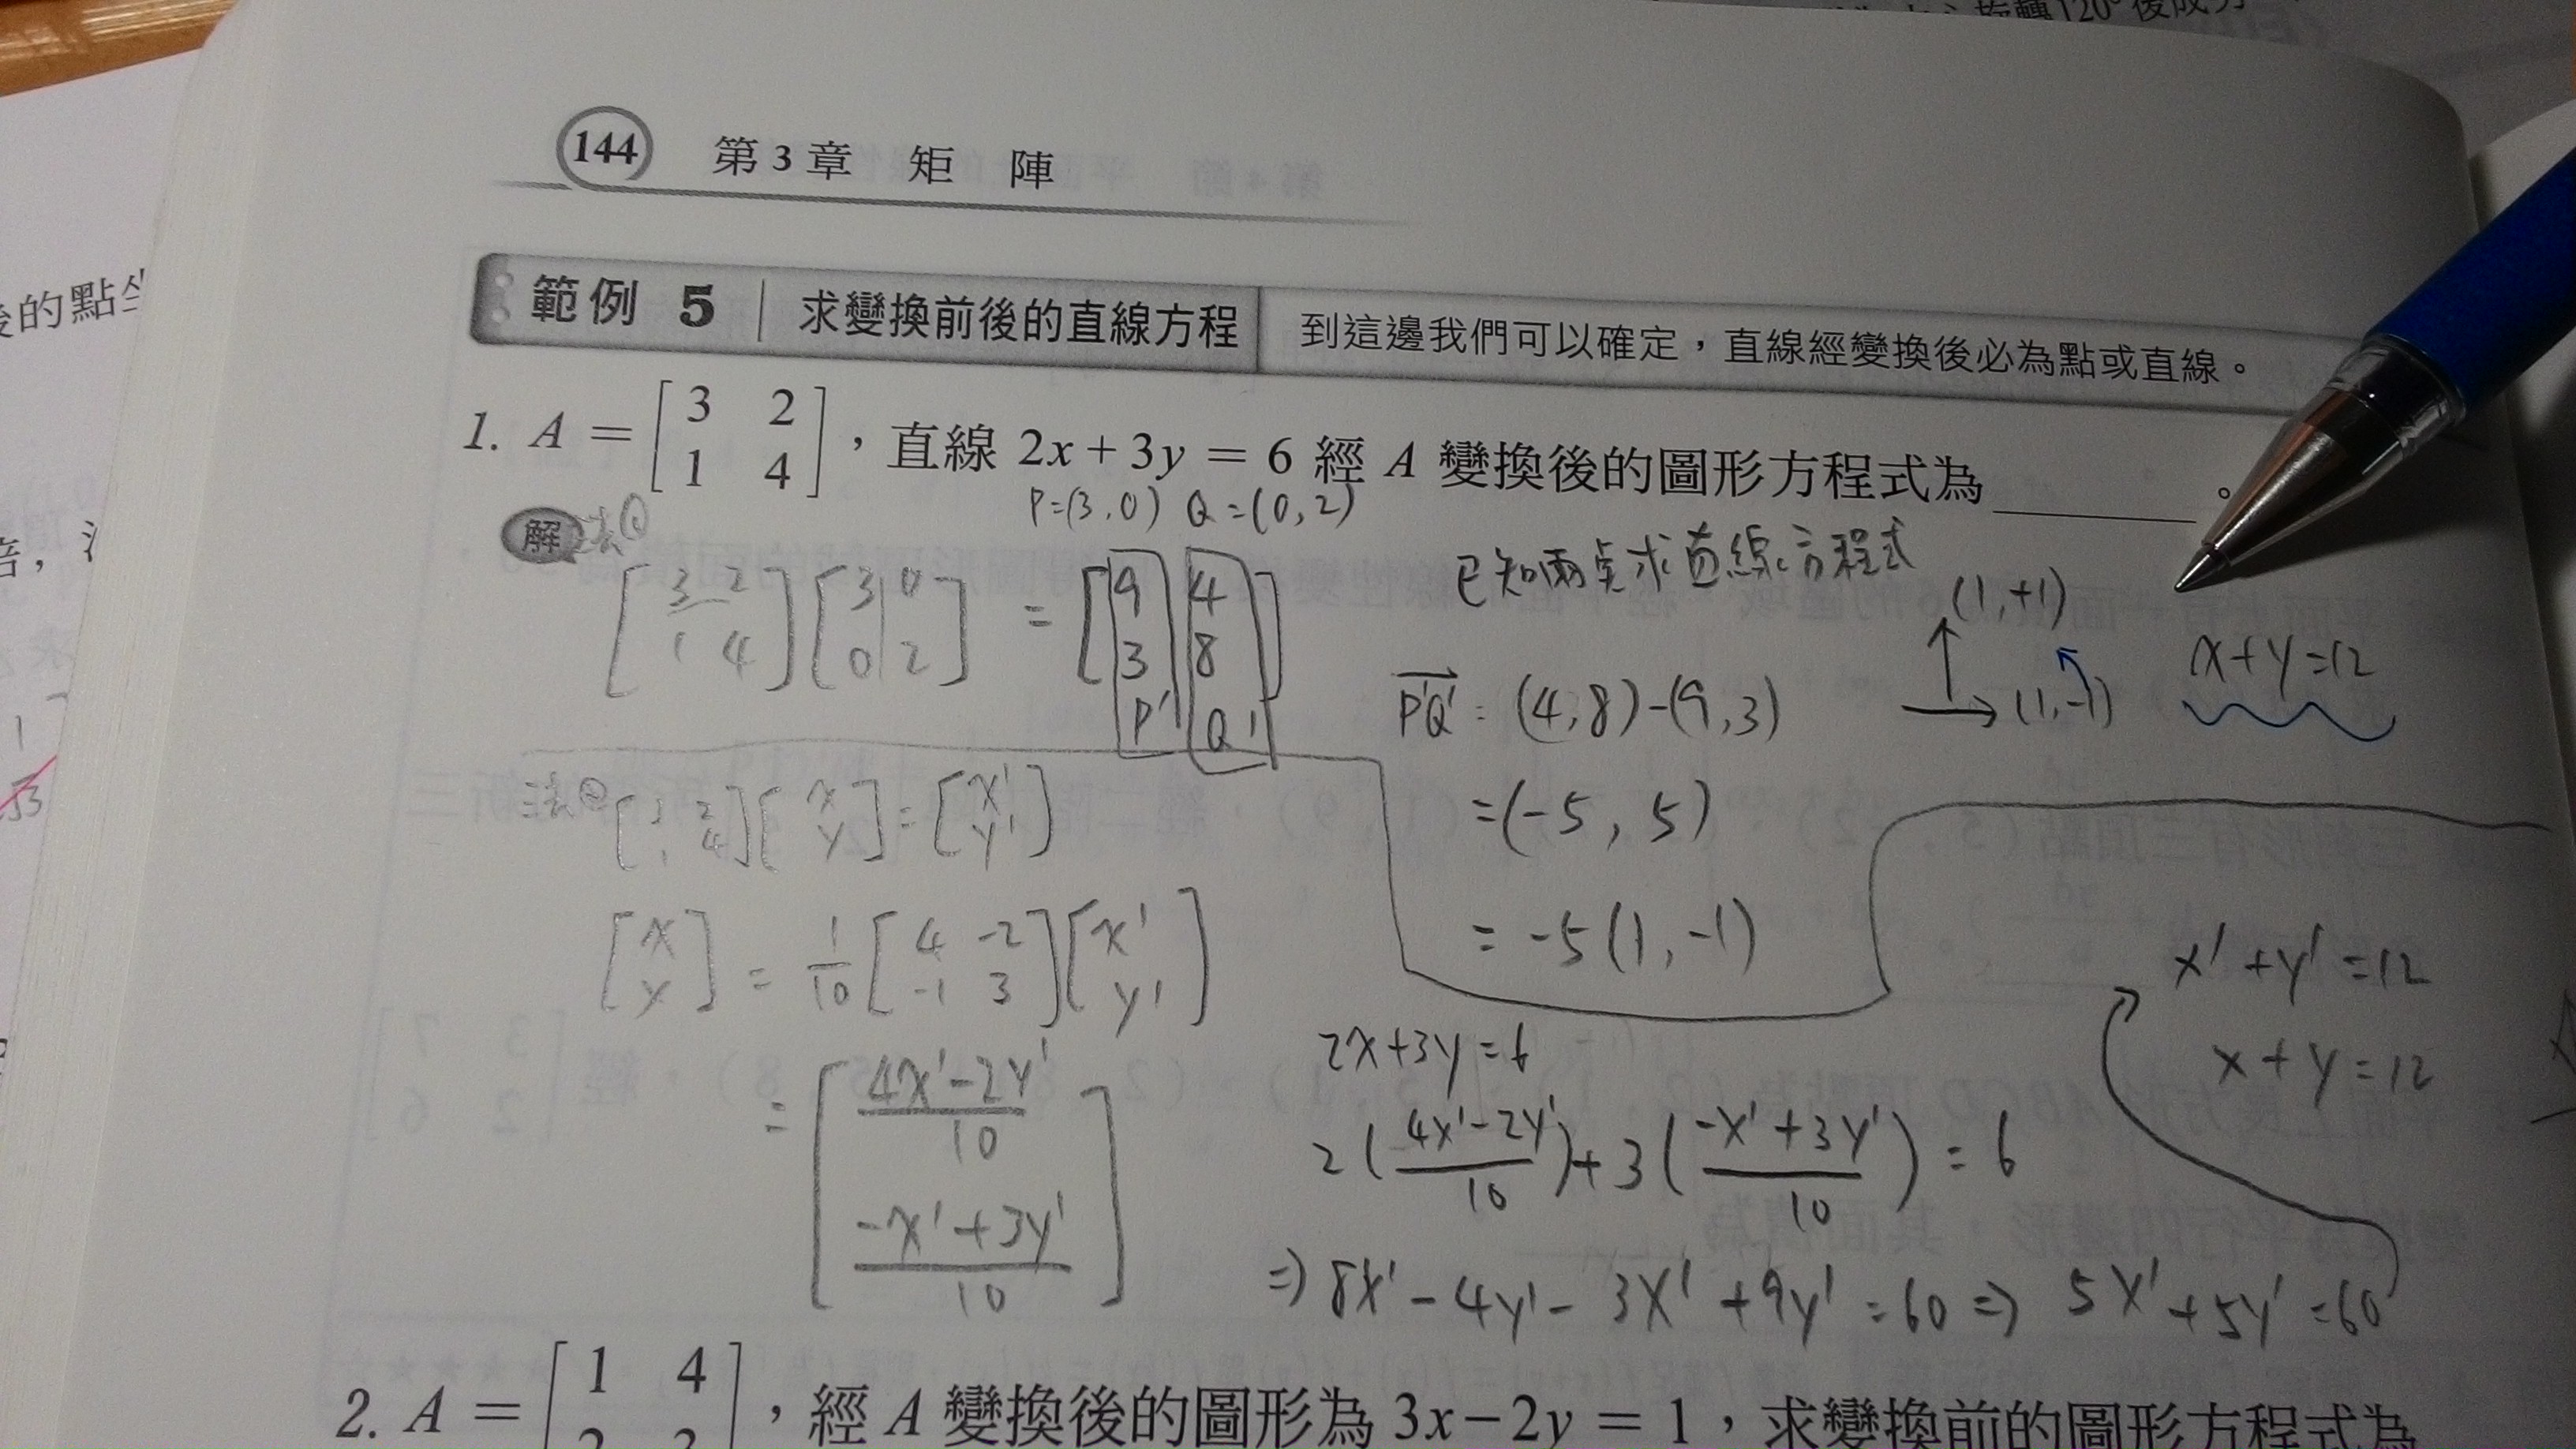 旋轉120°後成
144 第3章 矩 陣
後的點坐
範例 5 求變換前後的直線方程 到這邊我們可以確定，直線經變換後必為點或直線。
1. A = [3 2
1 4]，直線 2x+3y = 6 經 A 變換後的圖形方程式為______。
P=(3,0) Q=(0,2)
解 法①
[3 2
1 4][3 0
0 2] = [9 4
3 8]
P' Q'
已知兩點求直線方程式
P'Q' = (4,8)-(9,3)
=(-5, 5)
= -5(1,-1)
(1,+1)
(1,-1)
x+y=12
法②[3 2
1 4][x
y]=[x'
y']
[x
y] = 1/10 [4 -2
-1 3][x'
y']
= [4x'-2y'/10
-x'+3y'/10]
2x+3y=6
2(4x'-2y'/10)+3(-x'+3y'/10)=6
⇒ 8x'-4y'-3x'+9y'=60 ⇒ 5x'+5y'=60
x'+y'=12
x+y=12
2. A = [1 4
2 3]，經 A 變換後的圖形為 3x-2y = 1，求變換前的圖形方程式為